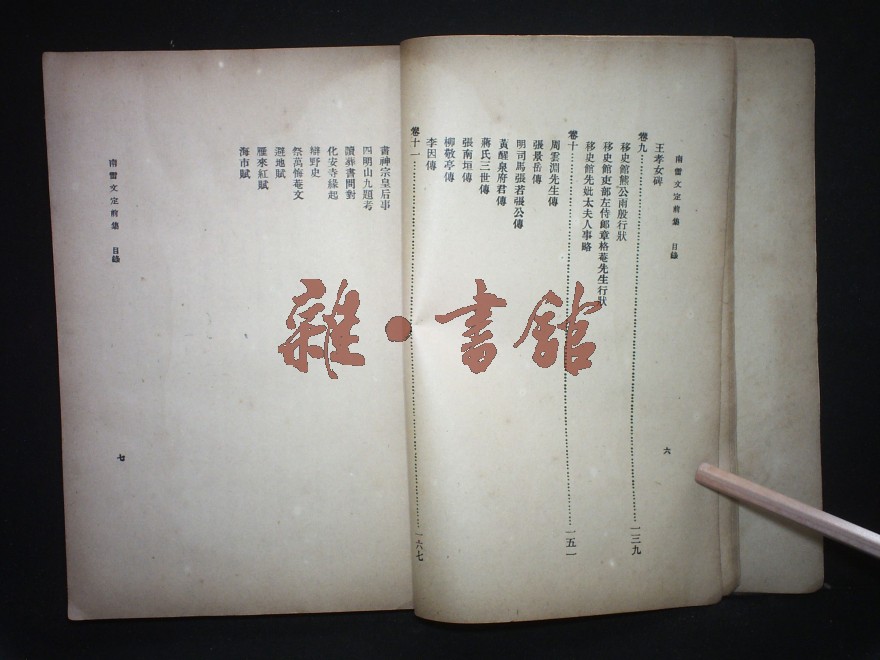 南雷文定前集　目錄
王孝女碑
卷九……一三九
移史館熊公雨殷行狀
移史館吏部左侍郎章格菴先生行狀
移史館先妣太夫人事略
卷十……一五一
周雲淵先生傳
張景岳傳
明司馬張若張公傳
黃醒泉府君傳
蔣氏三世傳
張南垣傳
柳敬亭傳
李因傳
六
卷十一……一六七
書神宗皇后事
四明山九題考
讀葬書問對
化安寺緣起
辯野史
祭萬悔菴文
避地賦
雁來紅賦
海市賦
南雷文定前集　目錄
七
雜·書館